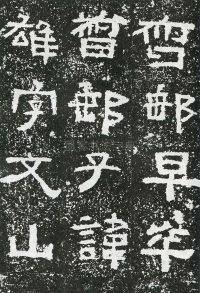 督郵早卒
督郵子諱
雄字文山